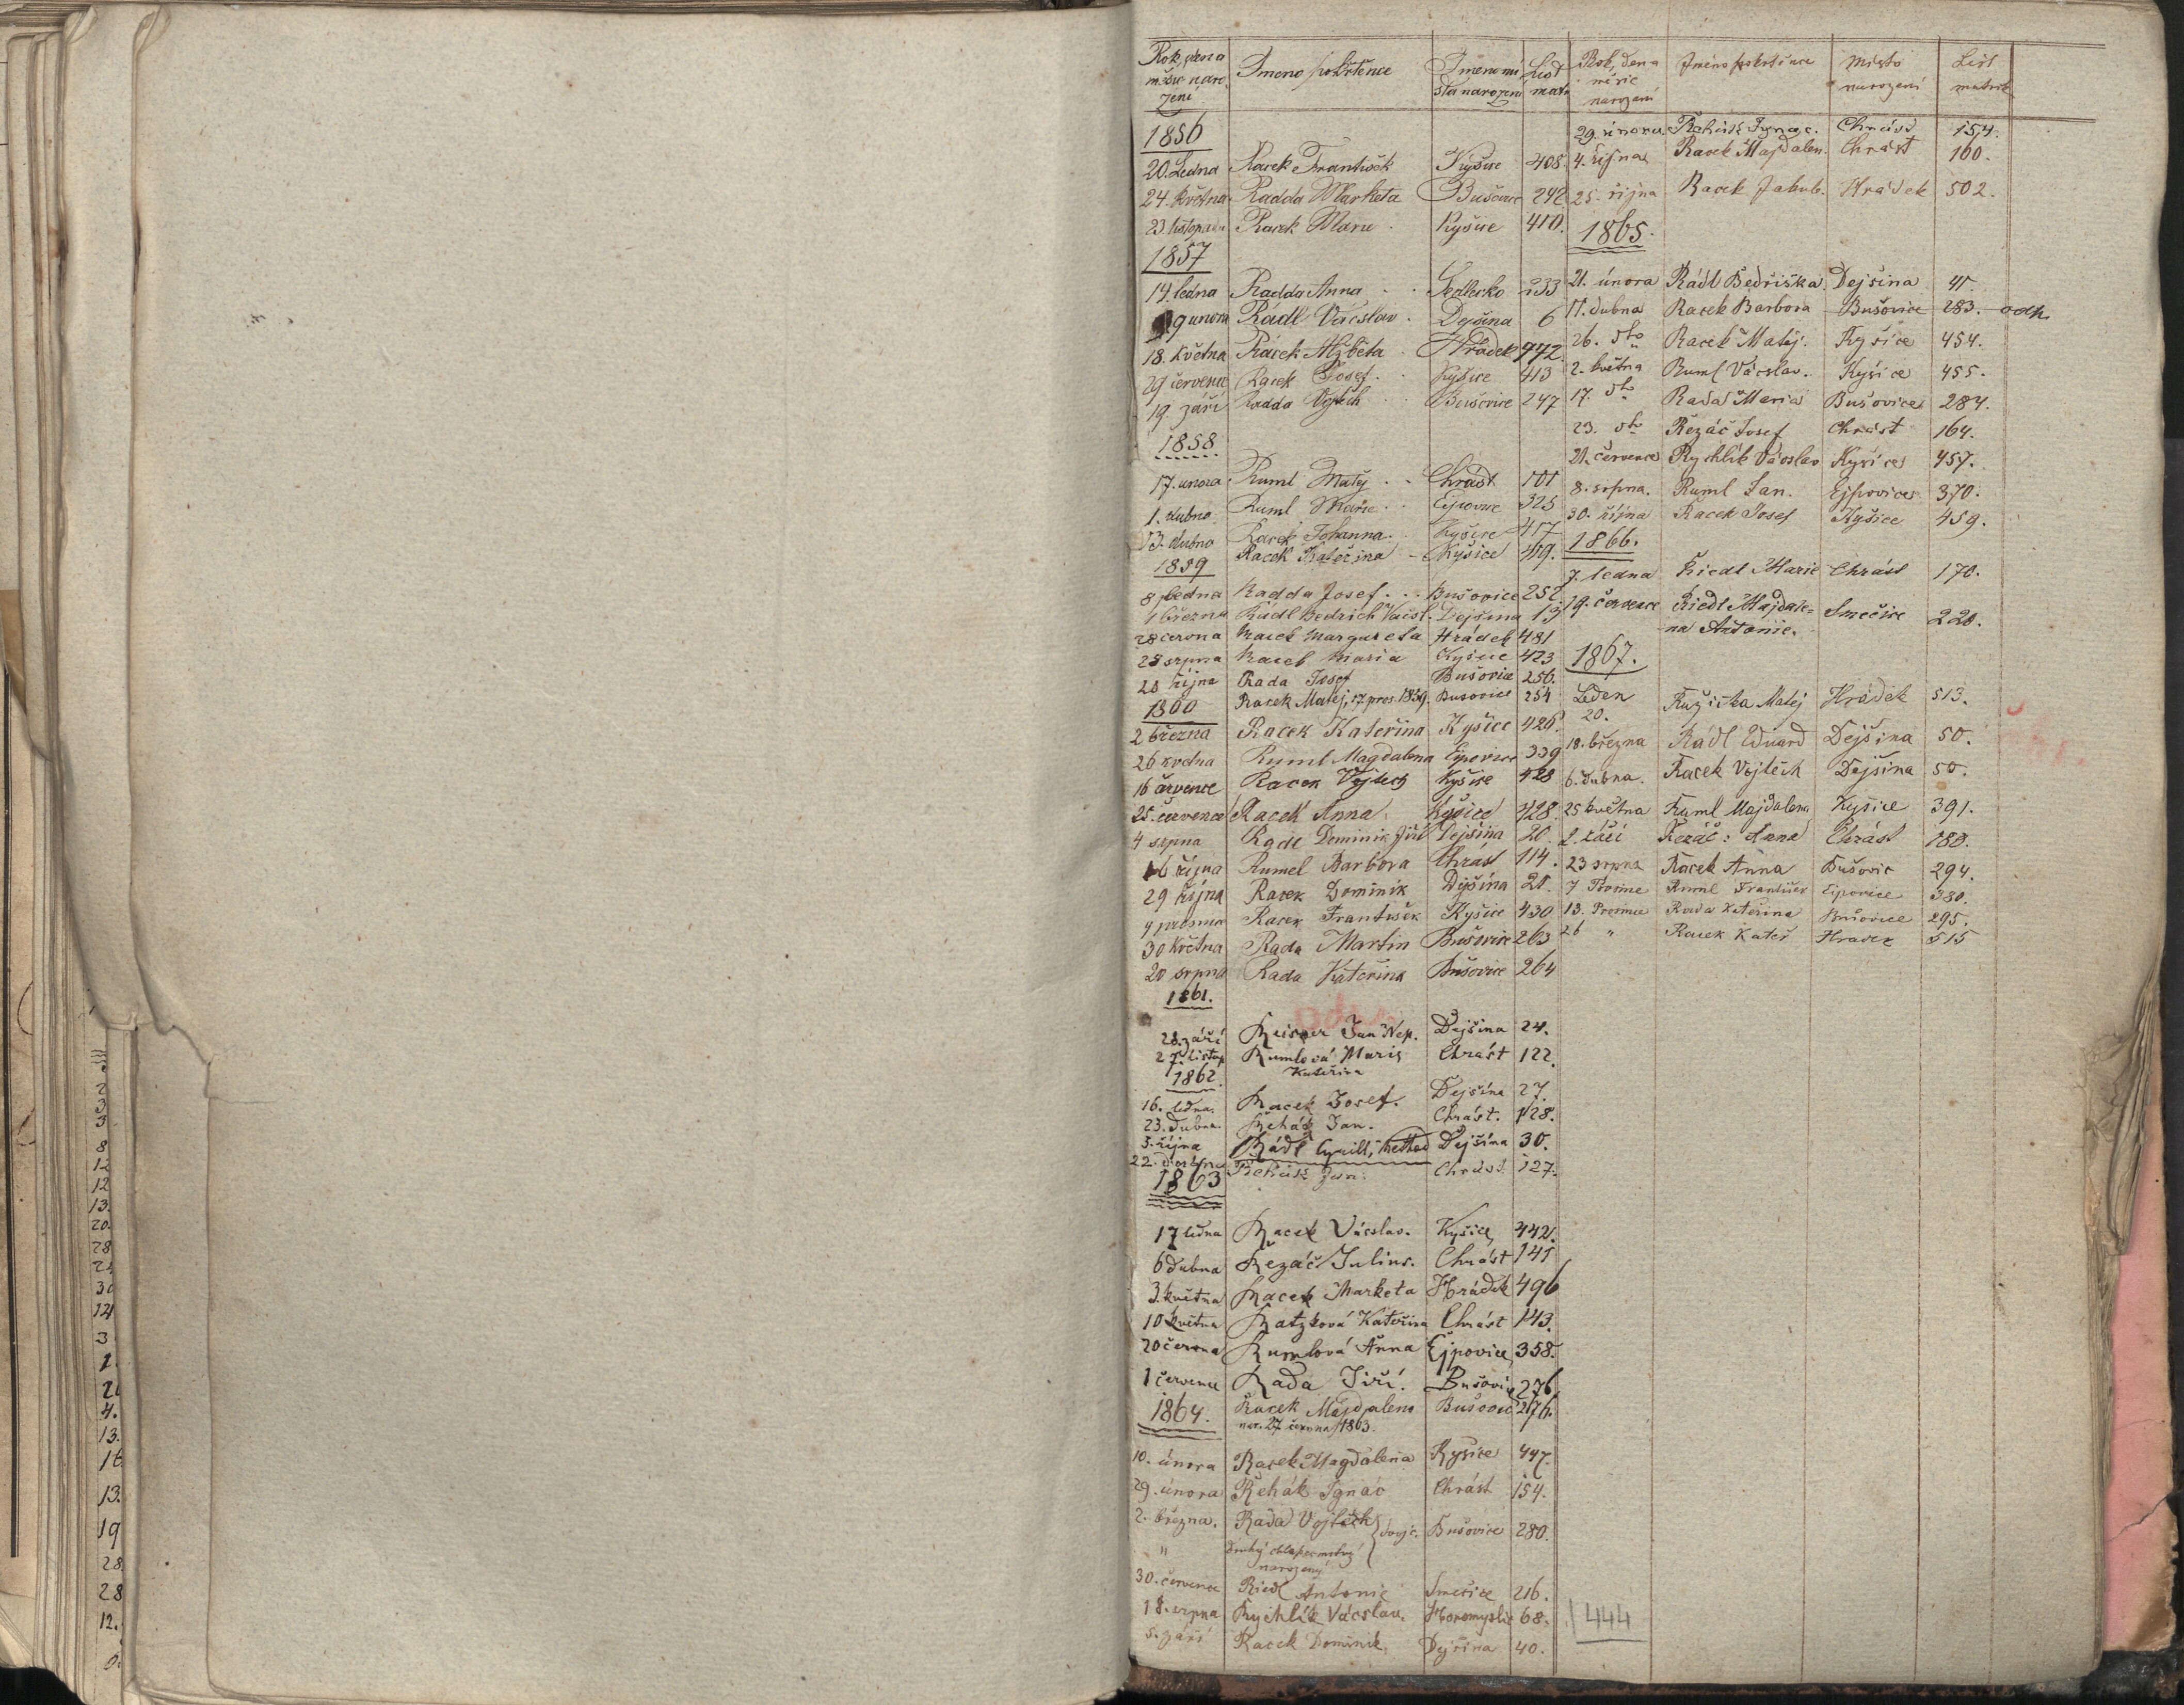 Rok, den a Jméno pokřtěnce Jméno mí- List
měsíc naro- sta narození matr.
zení
1856
20. Ledna Racek František Kyšice 408.
24. Května Radda Marketa Bušovice 242
23. listopadu Racek Marie Kyšice 410.
1857
14. ledna Radda Anna Sedlecko 233
9 unora Rádl Václav Dejšina 6
18. Května Racek Alžběta Hradek 472.
29 července Racek Josef Kyšice 413
19. září Radda Vojtěch Bušovice 247
1858.
17. unora Ruml Matěj Chrást 101
1. dubna Ruml Marie Ejpovice 325
13. dubna Racek Johanna Kyšice 417
1859 Racek Kateřina Kyšice 419.
8 ledna Radda Josef Bušovice 252
března Rádl Bedrich Václ. Dejšina 13
28 června Racek Margareta Hrádek 481
28 srpna Racek Maria Kyšice 423
28 října Rada Josef Bušovice 256.
1860 Racek Matěj, 17 pros. 1859 Bušovice 254
2 března Racek Kateřina Kyšice 426.
26 května Ruml Magdalena Ejpovice 339
16 července Racek Vojtěch Kyšice 428
25. července Racek Anna Kyšice 428.
4 srpna Radl Dominik Jiří Dejšina 20
16 října Rumel Barbora Chrást 114.
29 října Racek Dominik Dýšina 21.
9 prosince Racek František Kyšice 430
30 Května Rada Martin Bušovice 263
20 srpna Rada Kateřina Bušovice 264
1861.
28. září Reisner Jan Nep. Dejšina 24.
27. listop. Rumlová Marie Chrást 122.
Kateřina
1862.
16. ledna. Racek Josef. Dejšina 27.
23. Dubna. Řehák Jan. Chrást. 128.
5. října Rádl Cyrill, Method Dejšina 30.
22. Řehák Jan. Chrást. 127.
1863
17 ledna Racek Václav. Kyšice, 442.
6 dubna Řezáč Julius. Chrást 141
3. května Racek Marketa Hrádek 496
10 května Ratzková Kateřina Chrást 143.
20 června Rumlová Anna Ejpovice, 358.
1 července Rada Jiří. Bušovice 276
1864. Racek Majdalena Bušovice 276.
nar. 27 června 1863.
10. února Racek Magdalena Kyšice 447.
29. února Řehák Ignác Chrást 154.
2. března. Rada Vojtěch dvojč. Bušovice 280.
" Druhý chlapec mrtvý
narozený
30. července Riedl Antonie Smečice 216.
18. srpna Rychlík Václav. Horomyslic 68.
5. září Racek Dominik. Dejšina 40.
Rok, den a Jméno pokřtěnce Místo List
měsíc narození matrik
narození
29. února Řehák Ignac. Chrást 154.
4. října Racek Majdalen. Chrást 160.
25. října Racek Jakub. Hrádek 502.
1865.
21. února Rádl Bedřiška Dejšina 41.
11. dubna Racek Barbora Bušovice 283.
26. dto Racek Matěj. Kyšice 454.
2. května Ruml Václav. Kyšice 455.
17. dto Rada Maria Bušovice 284.
23. dto Řezáč Josef Chrást 164.
21. července Rychlík Václav Kyšice 457.
8. srpna. Ruml Jan. Ejpovice 370.
30. října Racek Josef Kyšice 459.
1866.
7. ledna Riedl Marie Chrást 170.
19. července Riedl Majdale= Smečice 220.
na Antonie.
1867.
Leden
20. Ružička Matěj Hrádek 513.
18. března Rádl Eduard Dejšina 50.
6. dubna. Racek Vojtěch Dejšina 50.
25 května Ruml Majdalena Kyšice 391.
2. září Řezáč: Anna Chrást 180.
23 srpna Racek Anna Bušovic 294.
7 Prosince Ruml František Ejpovice 380.
13. Prosince Rada Kateřina Bušovice 295.
26 " Racek Kateř Hradek 515
444